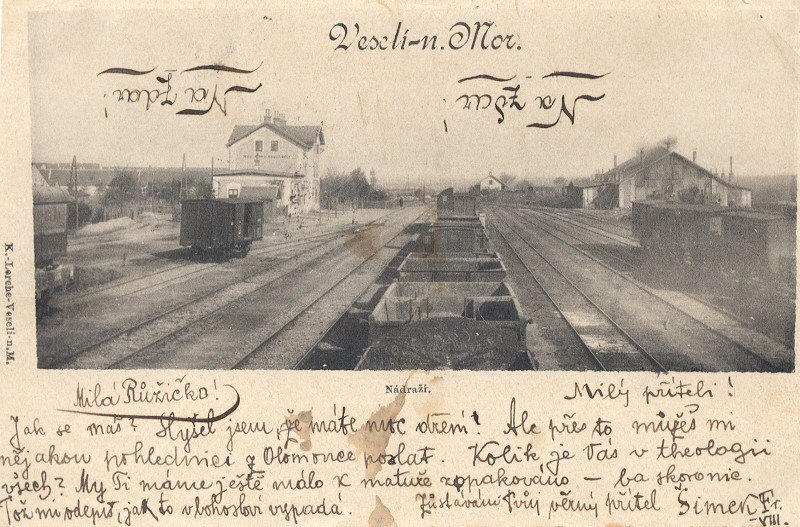 Veselí-n. Mor.
Na zdar!
Na zdar!
K.-Lerche-Veselí-n.M.
Nádraží.
Milá Růžičko!
Milý příteli!
Jak se máš? Slyšel jsem, že máte moc dření! Ale přes to můžeš mi
nějakou pohlednici z Olomouce poslat. Kolik je Vás v theologii
všech? My Ti máme ještě málo k matuře zopakováno – ba skoro nic.
Tož mu odepiš, jak to v bohosloví vypadá. Zůstávám Tvůj věrný přítel Šimek Fr.
VIII.